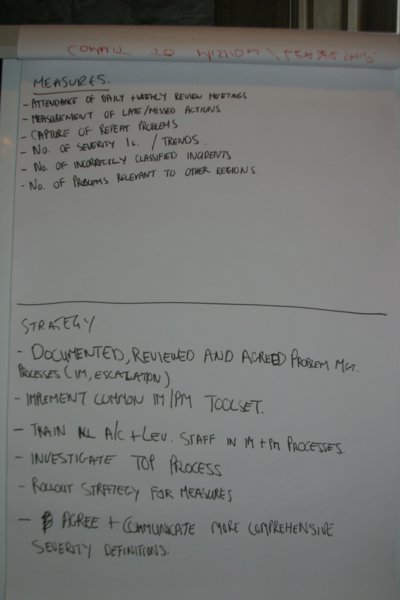 MEASURES.
- ATTENDANCE OF DAILY + WEEKLY REVIEW MEETINGS
- MEASUREMENT OF LATE/MISSED ACTIONS
- CAPTURE OF REPEAT PROBLEMS
- NO. OF SEVERITY 1s. / TRENDS.
- NO. OF INCORRECTLY CLASSIFIED INCIDENTS
- NO. OF PROBLEMS RELEVANT TO OTHER REGIONS.
STRATEGY
- DOCUMENTED, REVIEWED AND AGREED PROBLEM MGT.
PROCESSES (IM, ESCALATION)
- IMPLEMENT COMMON IM/PM TOOLSET.
- TRAIN ALL A/C + LEV. STAFF IN IM + PM PROCESSES.
- INVESTIGATE TOP PROCESS
- ROLLOUT STRATEGY FOR MEASURES
- AGREE + COMMUNICATE MORE COMPREHENSIVE
SEVERITY DEFINITIONS.